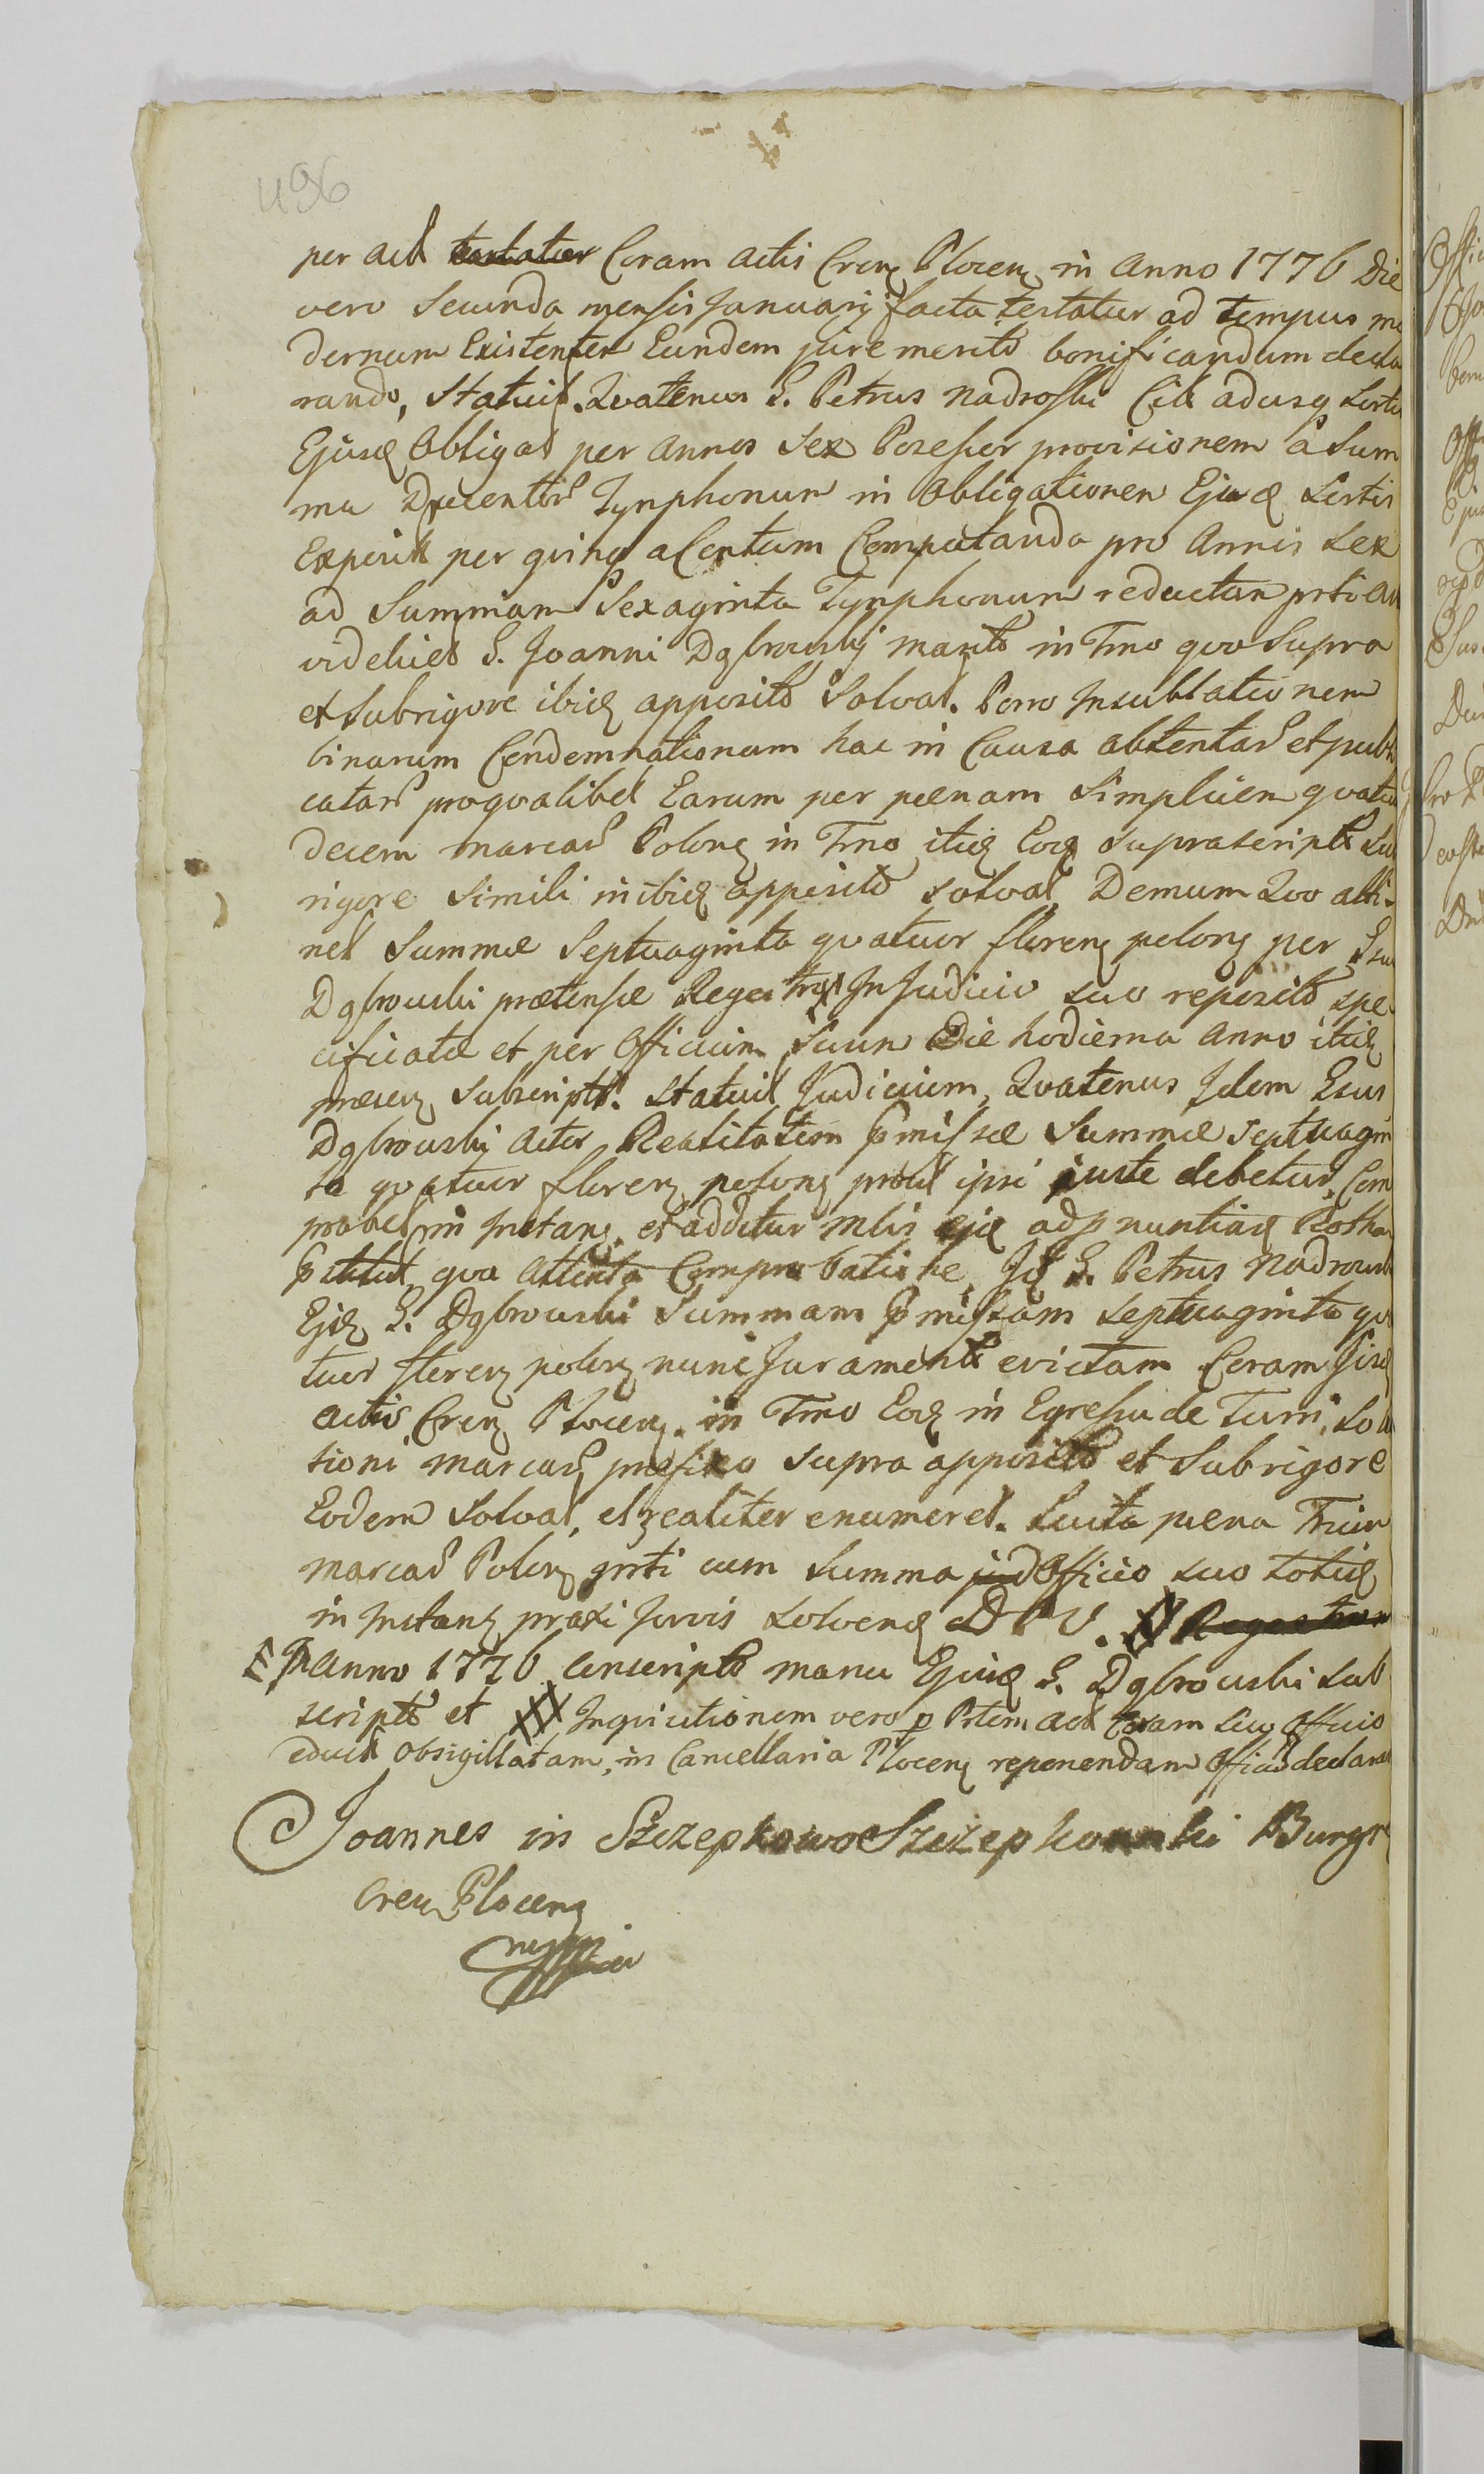 496
per act testatur Coram actis Cren Plocen in Anno 1776 Die
vero Secunda mensis Januarij facta testatur ad tempus mo
dernum Existenten Eundem jure merito bonificandum decla
rando, Statuit. Qvatenus G. Petrus Nadroski Cit adusq Sortis
Ejusd Obligat per annos Sex Possessor provisionem a Sum
ma Ducentor Tynphonum in Obligationem Ejusd Sortis
Exposit per qvinq a Centum Computanda pro Annis Sex
ad Summam Sexaginta Tynphonum reductam prti Act
videlicet G. Joanni Dąbrowski marito in Tmo qvo Supra
et Subrigore ibid apposito Solvat. Porro In sublationem
binarum Condemnationum hac in Causa obtentar et publi
catar pro qvalibet Earum per pœnam Simplicem qvatuor
decem marcar Polon in Tmo itid Eod supra scripto Sub
rigore Simili inibid apposito solvat Demum Qvo atti-
net Summæ Septuaginta qvatuor floren polon per Gsum
Dąbrowski prætensæ Regestro In Judicio suo reposito spe
cificatæ et per Officium Suum Die hodierna Anno itid
præsen subscripto. Statuit Judicium, Qvatenus Idem Gsus
Dąbrowski Actor Realitatem pmissæ Summæ septuagin
ta qvatuor floren polon prout ipsi juste debetur, Com
probet in Instan. et additur mlis ejd adpnuntiand Rotha
pstitit qva attenta Comprobatione, Id G. Petrus Nadrowski
Ejd G. Dąbrowski Summam pmissam septuaginta qva
tuor floren polon nunc Juramento evictam Coram Iisd
actis Cren Plocen. in Tmo Eod in Egressu de Turri, Solu
tioni marcar præfixo supra apposito et Subrigore
Eodem Solvat, et realiter enumeret. Luita pœna Trium
marcar Polon prti cum Summa jud Officio suo totid
in Instan praxi Juris Solvend D P U. Regestrum
In Anno 1776 conscripto manu Ejusd G. Dąbrowski sub
scripto et Inqvisitionem vero p Prtem Act Coram suo Officio
educt Obsigillatam, in Cancellaria Plocen reponendam Offici declarat
Joannes in Szczepkowo Szczepkowski Burgr
Cren Plocen